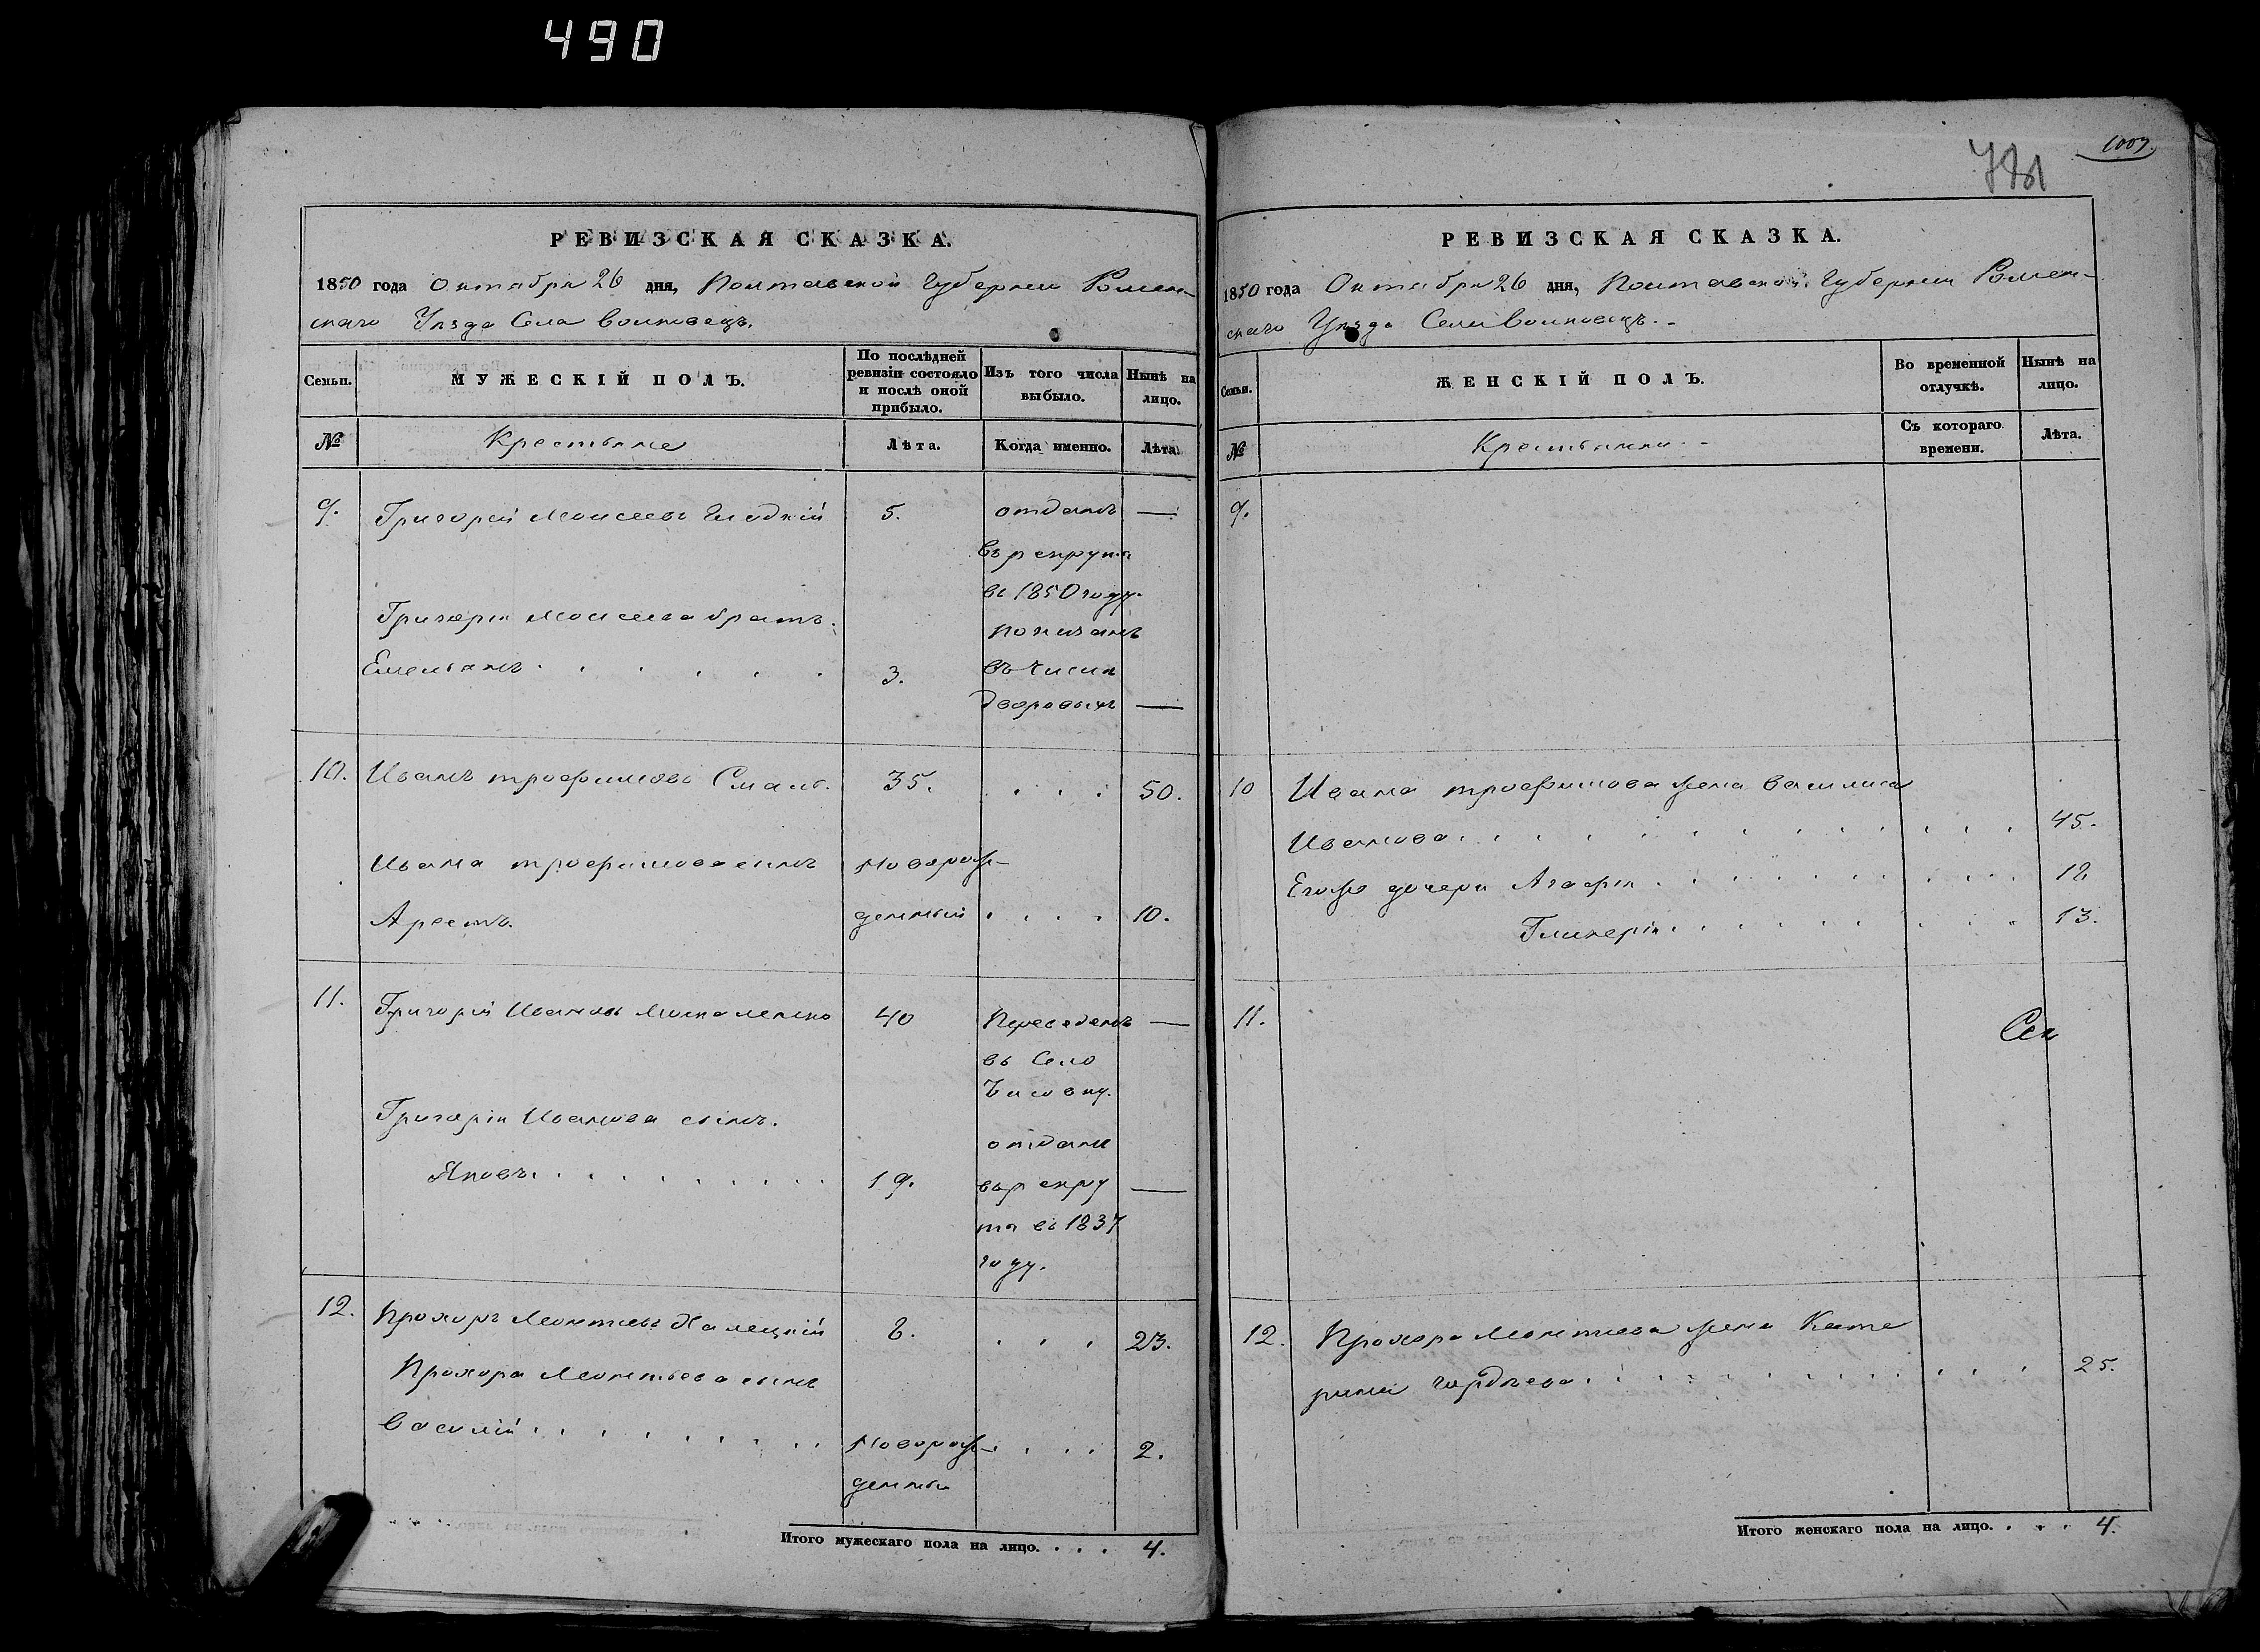 490
РЕВИЗСКАЯ СКАЗКА.
1850 года Октября 26 дня, Полтавской Губернии Ромен-
скаго Уѣзда Села Волковецъ.
Семьи.
МУЖЕСКІЙ ПОЛЪ.
По послѣдней ревизіи состояло и послѣ оной прибыло.
Изъ того числа выбыло.
Нынѣ на лицо.
№
Крестьяне
Лѣта.
Когда именно.
Лѣта.
9. Григорій Моисеевъ Гладкій 5. отданъ —
въ рекрути
въ 1850 году.
Григорія Моисеева братъ. показанъ
Емельянъ . . . . . . 3. въ числѣ
дворовыхъ —
10. Иванъ Трофимовъ 35. . . . 50.
Ивана Трофимова сынъ Новорож-
Арестъ. денный . . . . 10.
11. Григорій Ивановъ Москаленко 40 Переведенъ —
въ Село
отданъ
Григорія Иванова сынъ.
Яковъ . . . . . . . . . 19. въ рекру —
ты въ 1837
году.
12. Прохоръ Леонтьевъ 8. . . . 23.
Прохора Леонтьева сынъ
Василій . . . . . . . . Новорож- . . . . 2.
денный
Итого мужескаго пола на лицо. . . . 4.
1003.
РЕВИЗСКАЯ СКАЗКА.
1850 года Октября 26 дня, Полтавской Губернии Ромен-
скаго Уѣзда Села Волковецъ.-
Семьи.
ЖЕНСКІЙ ПОЛЪ.
Во временной отлучкѣ.
Нынѣ на лицо.
№
Крестьянки
Съ котораго времени.
Лѣта.
9.
10 Ивана Трофимова жена Василиса
Иванова . . . . . . . . . . . . 45.
Егоже дочери Агафія . . . . . . . . . . 18
Гликерія . . . . . . . . . 13.
11.
12. Прохора Леонтьева жена Кате
рина Гордѣева . . . . . . . . . . . . 25.
Итого женскаго пола на лицо. . . . 4.